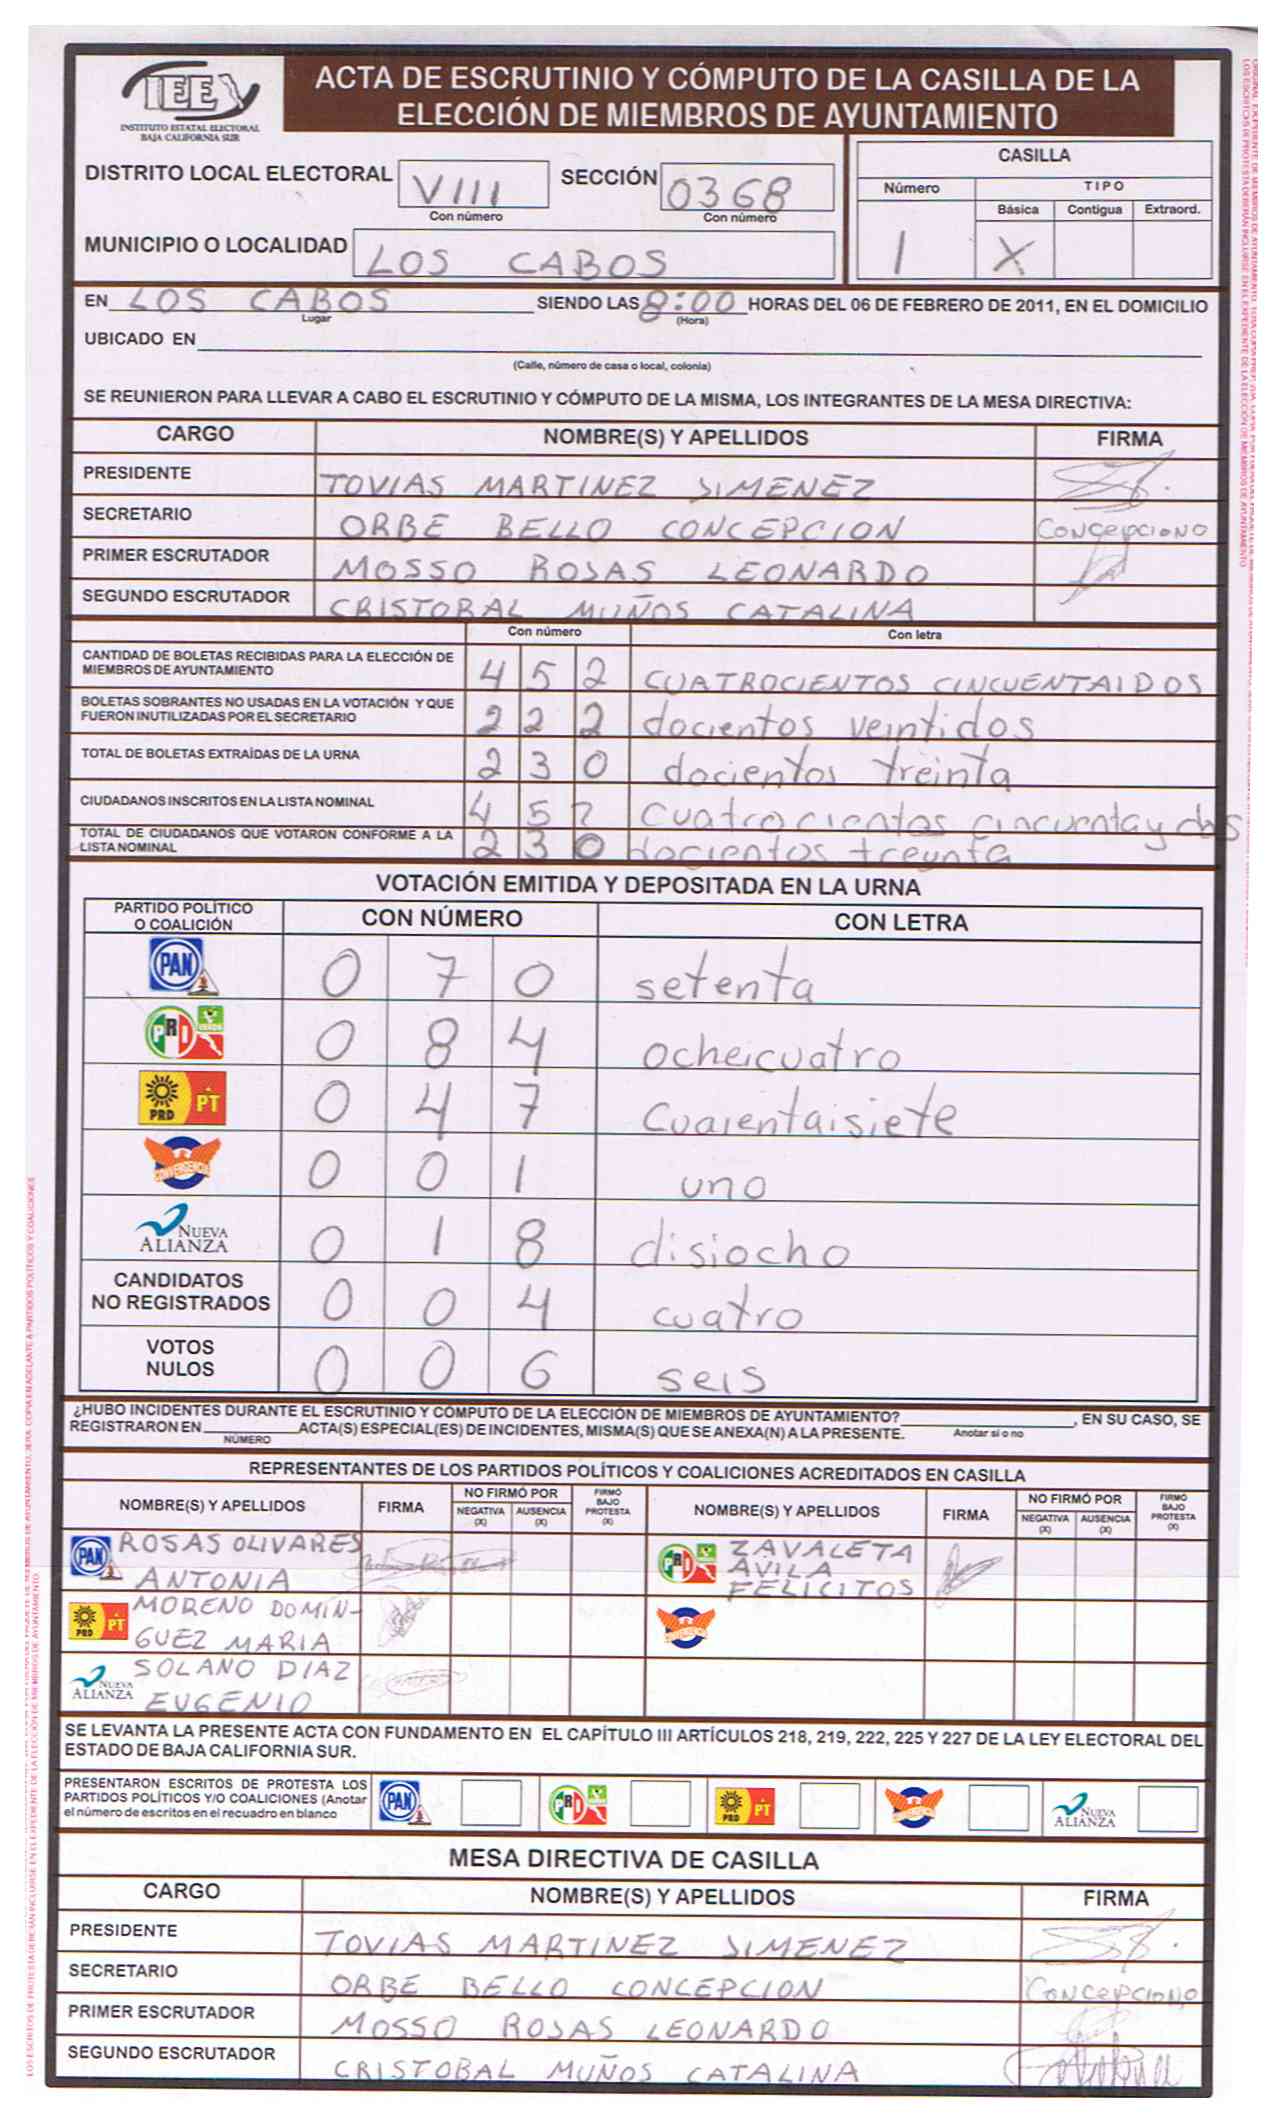 IEE
INSTITUTO ESTATAL ELECTORAL
BAJA CALIFORNIA SUR
ACTA DE ESCRUTINIO Y CÓMPUTO DE LA CASILLA DE LA
ELECCIÓN DE MIEMBROS DE AYUNTAMIENTO
DISTRITO LOCAL ELECTORAL VIII SECCIÓN 0368
Con número Con número
MUNICIPIO O LOCALIDAD LOS CABOS
CASILLA
Número TIPO
Básica Contigua Extraord.
1 X
EN LOS CABOS SIENDO LAS 8:00 HORAS DEL 06 DE FEBRERO DE 2011, EN EL DOMICILIO
Lugar (Hora)
UBICADO EN
(Calle, número de casa o local, colonia)
SE REUNIERON PARA LLEVAR A CABO EL ESCRUTINIO Y CÓMPUTO DE LA MISMA, LOS INTEGRANTES DE LA MESA DIRECTIVA:
CARGO NOMBRE(S) Y APELLIDOS FIRMA
PRESIDENTE TOVIAS MARTINEZ JIMENEZ
SECRETARIO ORBE BELLO CONCEPCION Concepciono
PRIMER ESCRUTADOR MOSSO ROSAS LEONARDO
SEGUNDO ESCRUTADOR CRISTOBAL MUÑOS CATALINA
Con número Con letra
CANTIDAD DE BOLETAS RECIBIDAS PARA LA ELECCIÓN DE
MIEMBROS DE AYUNTAMIENTO 4 5 2 CUATROCIENTOS CINCUENTAIDOS
BOLETAS SOBRANTES NO USADAS EN LA VOTACIÓN Y QUE
FUERON INUTILIZADAS POR EL SECRETARIO 2 2 2 docientos veintidos
TOTAL DE BOLETAS EXTRAÍDAS DE LA URNA 2 3 0 docientos treinta
CIUDADANOS INSCRITOS EN LA LISTA NOMINAL 4 5 2 cuatrocientos cincuentaydos
TOTAL DE CIUDADANOS QUE VOTARON CONFORME A LA
LISTA NOMINAL 2 3 0 docientos treynta
VOTACIÓN EMITIDA Y DEPOSITADA EN LA URNA
PARTIDO POLÍTICO
O COALICIÓN CON NÚMERO CON LETRA
PAN 0 7 0 setenta
PRI VERDE 0 8 4 ocheicuatro
PRD PT 0 4 7 cuarentaisiete
CONVERGENCIA 0 0 1 uno
NUEVA
ALIANZA 0 1 8 disiocho
CANDIDATOS
NO REGISTRADOS 0 0 4 cuatro
VOTOS
NULOS 0 0 6 seis
¿HUBO INCIDENTES DURANTE EL ESCRUTINIO Y CÓMPUTO DE LA ELECCIÓN DE MIEMBROS DE AYUNTAMIENTO? , EN SU CASO, SE
REGISTRARON EN ACTA(S) ESPECIAL(ES) DE INCIDENTES, MISMA(S) QUE SE ANEXA(N) A LA PRESENTE. Anotar si o no
NÚMERO
REPRESENTANTES DE LOS PARTIDOS POLÍTICOS Y COALICIONES ACREDITADOS EN CASILLA
NOMBRE(S) Y APELLIDOS FIRMA NO FIRMÓ POR NEGATIVA (X) AUSENCIA (X) FIRMÓ BAJO PROTESTA (X) NOMBRE(S) Y APELLIDOS FIRMA NO FIRMÓ POR NEGATIVA (X) AUSENCIA (X) FIRMÓ BAJO PROTESTA (X)
PAN ROSAS OLIVARES
ANTONIA
PRI ZAVALETA
AVILA
FELICITOS
PRD PT MORENO DOMIN-
GUEZ MARIA
CONVERGENCIA
NUEVA
ALIANZA SOLANO DIAZ
EUGENIO
SE LEVANTA LA PRESENTE ACTA CON FUNDAMENTO EN EL CAPÍTULO III ARTÍCULOS 218, 219, 222, 225 Y 227 DE LA LEY ELECTORAL DEL
ESTADO DE BAJA CALIFORNIA SUR.
PRESENTARON ESCRITOS DE PROTESTA LOS
PARTIDOS POLÍTICOS Y/O COALICIONES (Anotar
el número de escritos en el recuadro en blanco
PAN PRI PRD PT CONVERGENCIA NUEVA ALIANZA
MESA DIRECTIVA DE CASILLA
CARGO NOMBRE(S) Y APELLIDOS FIRMA
PRESIDENTE TOVIAS MARTINEZ JIMENEZ
SECRETARIO ORBE BELLO CONCEPCION Concepciono
PRIMER ESCRUTADOR MOSSO ROSAS LEONARDO
SEGUNDO ESCRUTADOR CRISTOBAL MUÑOS CATALINA